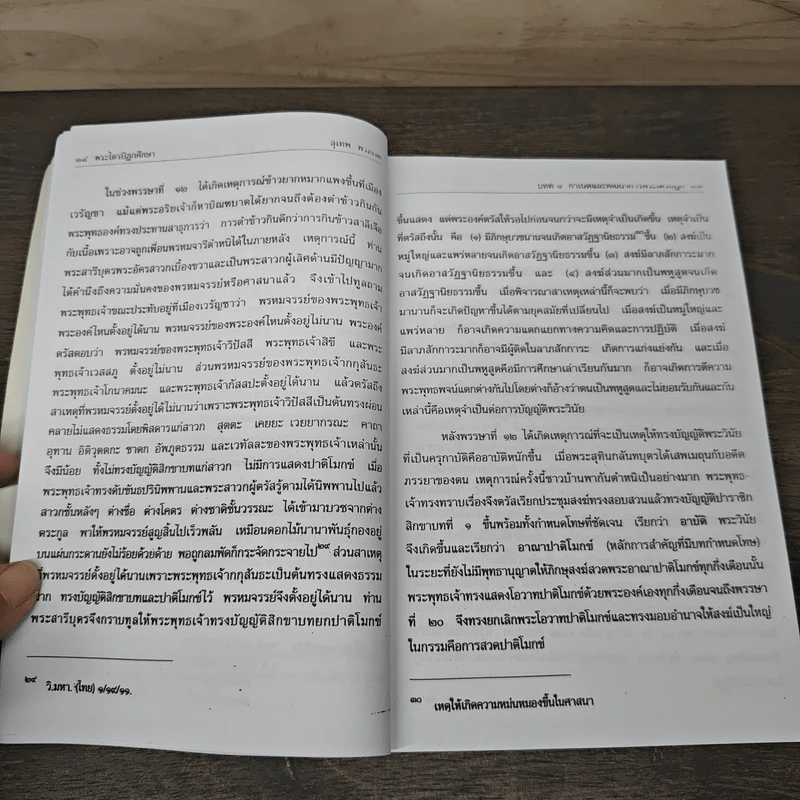 ๑๘ พระไตรปิฎกศึกษา
สุเทพ
ในช่วงพรรษาที่ ๑๒ ได้เกิดเหตุการณ์ข้าวยากหมากแพงขึ้นที่เมือง
เวรัญชา แม้แต่พระอริยเจ้าก็หาบิณฑบาตได้ยากจนถึงต้องตำข้าวกินกัน
พระพุทธองค์ทรงประทานสาธุการว่า การตำข้าวกินดีกว่าการกินข้าวสาลีเจือ
กับเนื้อเพราะอาจถูกเพื่อนพรหมจารีตำหนิได้ในภายหลัง เหตุการณ์นี้ ท่าน
พระสารีบุตรพระอัครสาวกเบื้องขวาและเป็นพระสาวกผู้เลิศด้านมีปัญญามาก
ได้คำนึงถึงความมั่นคงของพรหมจรรย์หรือศาสนาแล้ว จึงเข้าไปทูลถาม
พระพุทธเจ้าขณะประทับอยู่ที่เมืองเวรัญชาว่า พรหมจรรย์ของพระพุทธเจ้า
พระองค์ไหนตั้งอยู่ได้นาน พรหมจรรย์ของพระองค์ไหนตั้งอยู่ไม่นาน พระองค์
ตรัสตอบว่า พรหมจรรย์ของพระพุทธเจ้าวิปัสสี พระพุทธเจ้าสิขี และพระ
พุทธเจ้าเวสสภู ตั้งอยู่ไม่นาน ส่วนพรหมจรรย์ของพระพุทธเจ้ากกุสันธะ
พระพุทธเจ้าโกนาคมนะ และพระพุทธเจ้ากัสสปะตั้งอยู่ได้นาน แล้วตรัสถึง
สาเหตุที่พรหมจรรย์ตั้งอยู่ได้ไม่นานว่าเพราะพระพุทธเจ้าวิปัสสีเป็นต้นทรงผ่อน
คลายไม่แสดงธรรมโดยพิสดารแก่สาวก สุตตะ เคยยะ เวยยากรณะ คาถา
อุทาน อิติวุตตกะ ชาดก อัพภูตธรรม และเวทัลละของพระพุทธเจ้าเหล่านั้น
จึงมีน้อย ทั้งไม่ทรงบัญญัติสิกขาบทแก่สาวก ไม่มีการแสดงปาติโมกข์ เมื่อ
พระพุทธเจ้าทรงดับขันธปรินิพพานและพระสาวกผู้ตรัสรู้ตามได้นิพพานไปแล้ว
สาวกชั้นหลังๆ ต่างชื่อ ต่างโคตร ต่างชาติชั้นวรรณะ ได้เข้ามาบวชจากต่าง
ตระกูล พาให้พรหมจรรย์สูญสิ้นไปเร็วพลัน เหมือนดอกไม้นานาพันธุ์กองอยู่
บนแผ่นกระดานยังไม่ร้อยด้วยด้าย พอถูกลมพัดก็กระจัดกระจายไป๒๙ ส่วนสาเหตุ
ที่พรหมจรรย์ตั้งอยู่ได้นานเพราะพระพุทธเจ้ากกุสันธะเป็นต้นทรงแสดงธรรม
มาก ทรงบัญญัติสิกขาบทและปาติโมกข์ไว้ พรหมจรรย์จึงตั้งอยู่ได้นาน ท่าน
พระสารีบุตรจึงกราบทูลให้พระพุทธเจ้าทรงบัญญัติสิกขาบทยกปาติโมกข์
๒๙ วิ.มหา. (ไทย) ๑/๑๙/๑๑.
บทที่ ๑
ขึ้นแสดง แต่พระองค์ตรัสให้รอไปก่อนจนกว่าจะมีเหตุจำเป็นเกิดขึ้น เหตุจำเป็น
ที่ตรัสถึงนั้น คือ (๑) มีภิกษุบวชนานจนเกิดอาสวัฏฐานิยธรรม๓๐ขึ้น (๒) สงฆ์เป็น
หมู่ใหญ่และแพร่หลายจนเกิดอาสวัฏฐานิยธรรมขึ้น (๓) สงฆ์มีลาภสักการะมาก
จนเกิดอาสวัฏฐานิยธรรมขึ้น และ (๔) สงฆ์ส่วนมากเป็นพหูสูตจนเกิด
อาสวัฏฐานิยธรรมขึ้น เมื่อพิจารณาสาเหตุเหล่านี้ก็จะพบว่า เมื่อมีภิกษุบวช
มานานก็จะเกิดปัญหาขึ้นได้ตามยุคสมัยที่เปลี่ยนไป เมื่อสงฆ์เป็นหมู่ใหญ่และ
แพร่หลาย ก็อาจเกิดความแตกแยกทางความคิดและการปฏิบัติ เมื่อสงฆ์
มีลาภสักการะมากก็อาจมีผู้ติดในลาภสักการะ เกิดการแก่งแย่งกัน และเมื่อ
สงฆ์ส่วนมากเป็นพหูสูตคือมีการศึกษาเล่าเรียนกันมาก ก็อาจเกิดการตีความ
พระพุทธพจน์แตกต่างกันไปโดยต่างก็อ้างว่าตนเป็นพหูสูตและไม่ยอมรับกันและกัน
เหล่านี้คือเหตุจำเป็นต่อการบัญญัติพระวินัย
หลังพรรษาที่ ๑๒ ได้เกิดเหตุการณ์ที่จะเป็นเหตุให้ทรงบัญญัติพระวินัย
ที่เป็นครุกาบัติคืออาบัติหนักขึ้น เมื่อพระสุทินกลันทบุตรได้เสพเมถุนกับอดีต
ภรรยาของตน เหตุการณ์ครั้งนี้ชาวบ้านพากันตำหนิเป็นอย่างมาก พระพุทธ-
เจ้าทรงทราบเรื่องจึงตรัสเรียกประชุมสงฆ์ทรงสอบสวนแล้วทรงบัญญัติปาราชิก
สิกขาบทที่ ๑ ขึ้นพร้อมทั้งกำหนดโทษที่ชัดเจน เรียกว่า อาบัติ พระวินัย
จึงเกิดขึ้นและเรียกว่า อาณาปาติโมกข์ (หลักการสำคัญที่มีบทกำหนดโทษ)
ในระยะที่ยังไม่มีพุทธานุญาตให้ภิกษุสงฆ์สวดพระอาณาปาติโมกข์ทุกกึ่งเดือนนั้น
พระพุทธเจ้าทรงแสดงโอวาทปาติโมกข์ด้วยพระองค์เองทุกกึ่งเดือนจนถึงพรรษา
ที่ ๒๐ จึงทรงยกเลิกพระโอวาทปาติโมกข์และทรงมอบอำนาจให้สงฆ์เป็นใหญ่
ในกรรมคือการสวดปาติโมกข์
๓๐ เหตุให้เกิดความหม่นหมองขึ้นในศาสนา